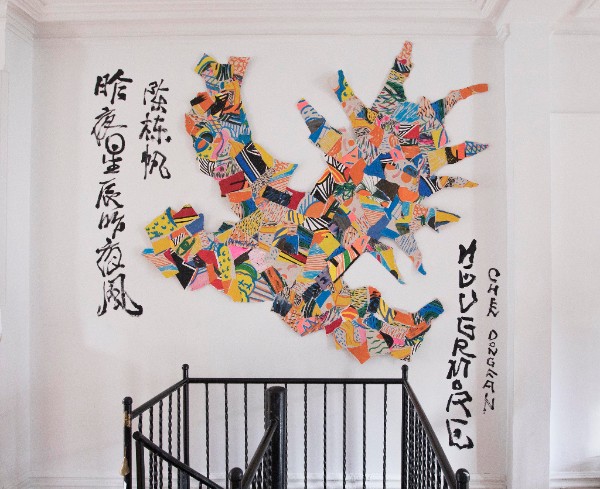 昨夜星辰昨夜风
陈栋帆
NEVERMORE
CHEN DONGFAN